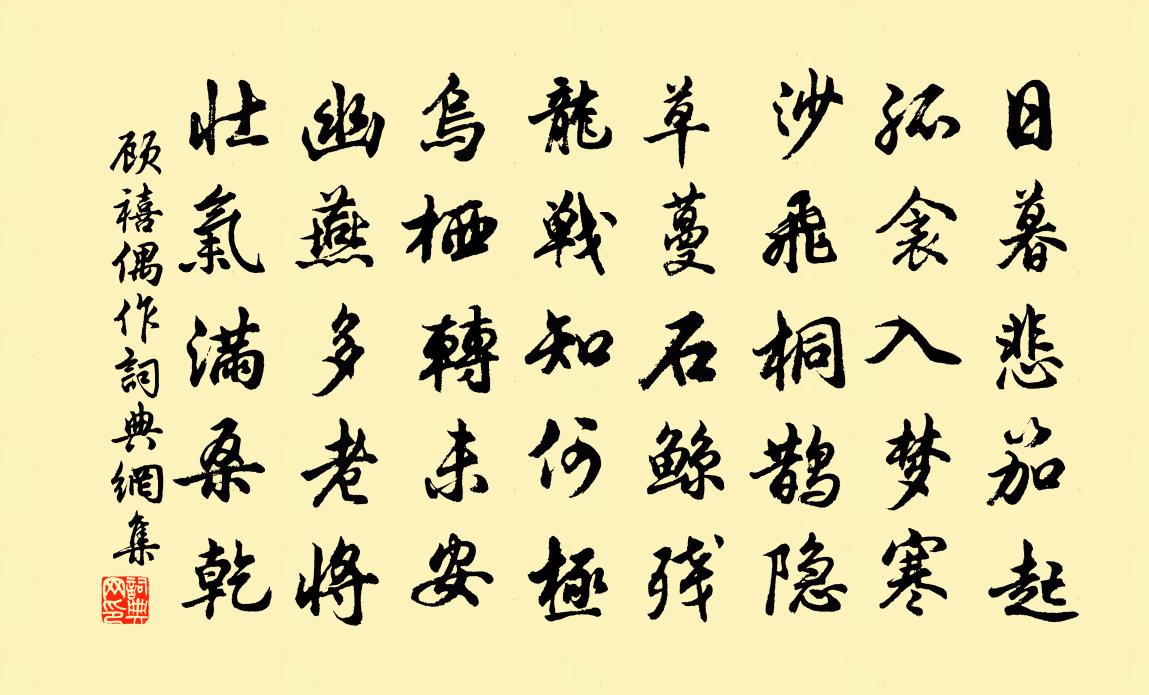 日暮悲笳起
孤衾入梦寒
沙飛桐鵲隐
草蔓石鲸残
龍戦知何極
烏栖轉未安
幽燕多老将
壮氣满桑乾
顾禧偶作詞典網集
詞典网印